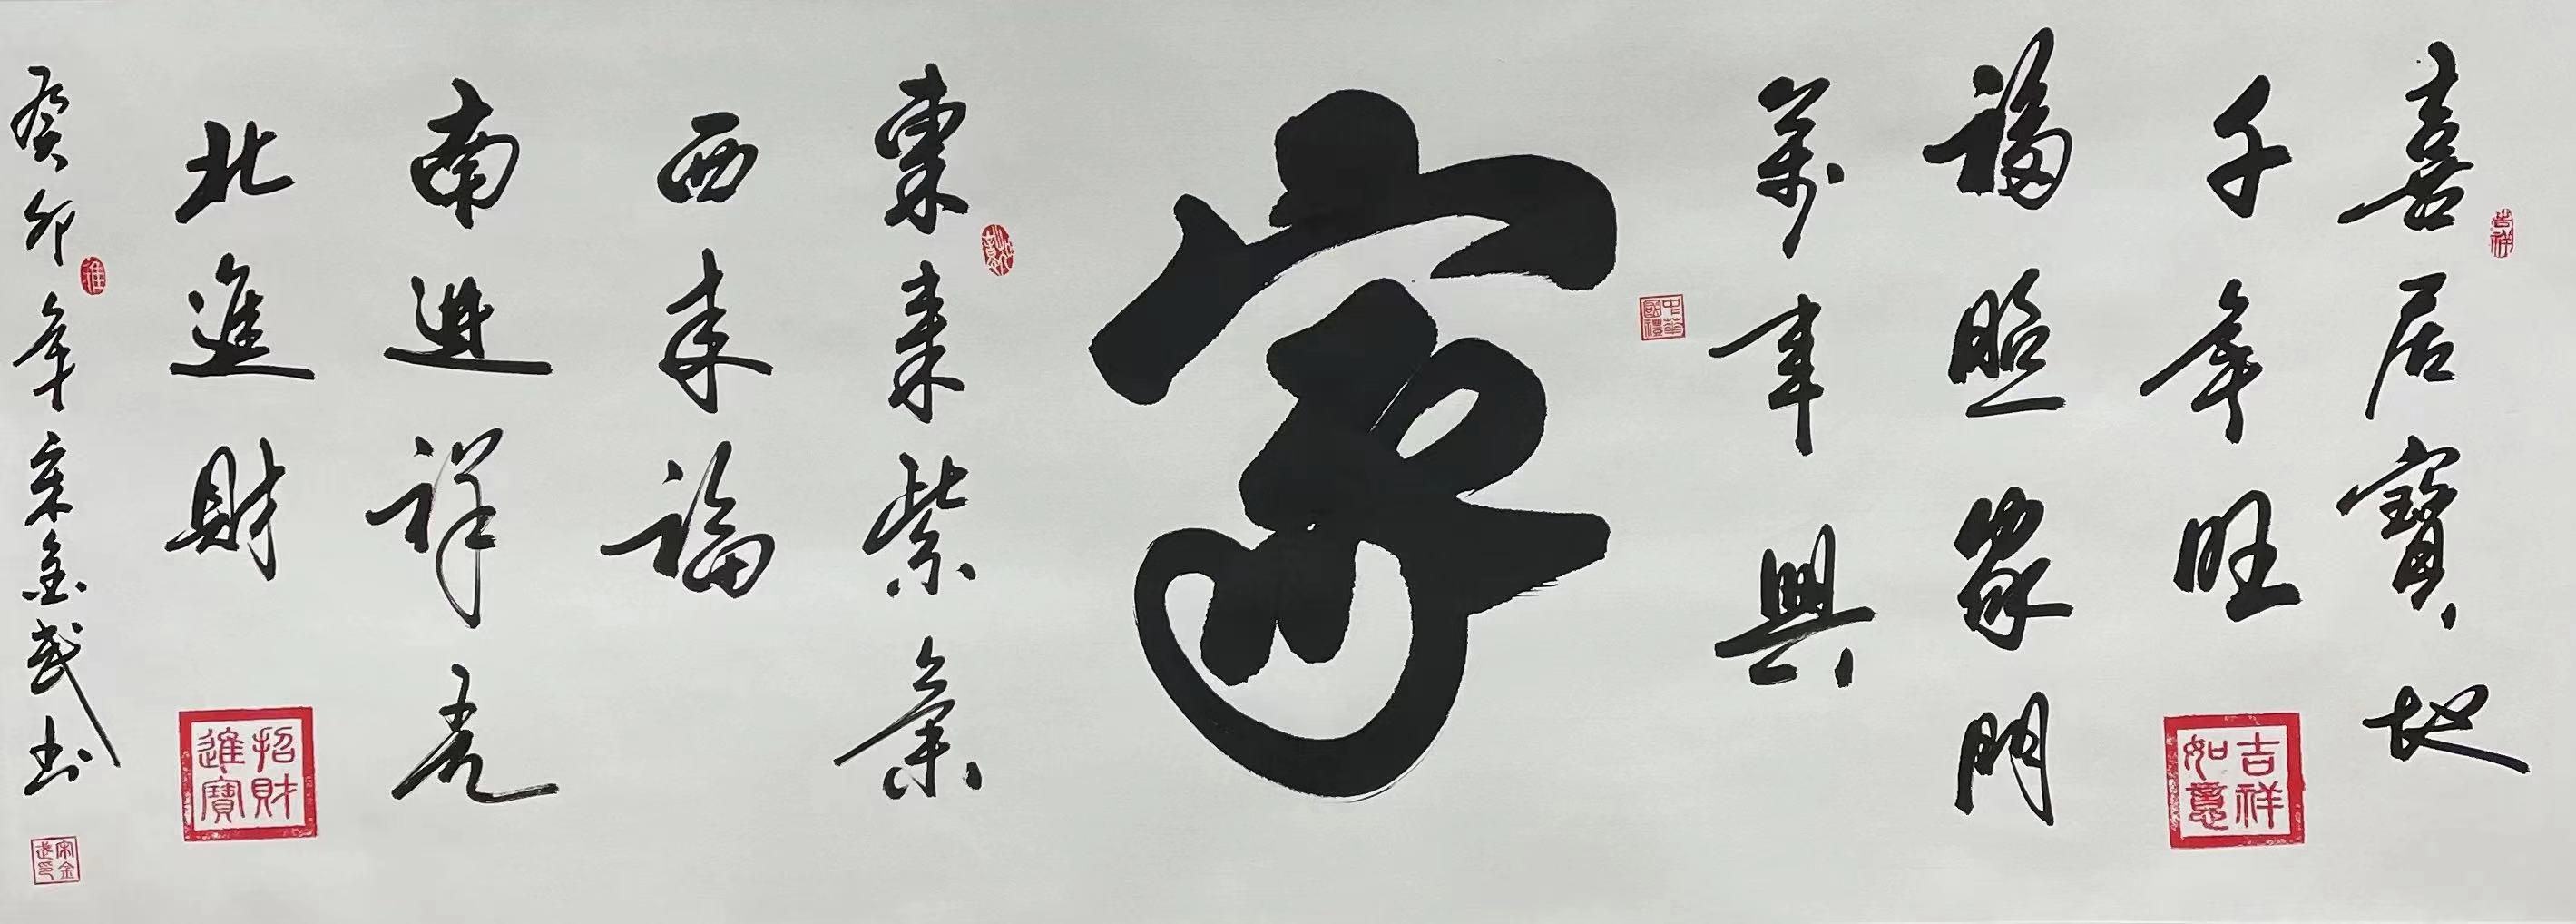 喜居寶地
千年旺
福照家門
萬事興
家
東來紫氣
西來福
南進祥光
北進財
癸卯年宋金武書
吉祥
吉祥如意
中華國禮
招財進寶
宋金武印